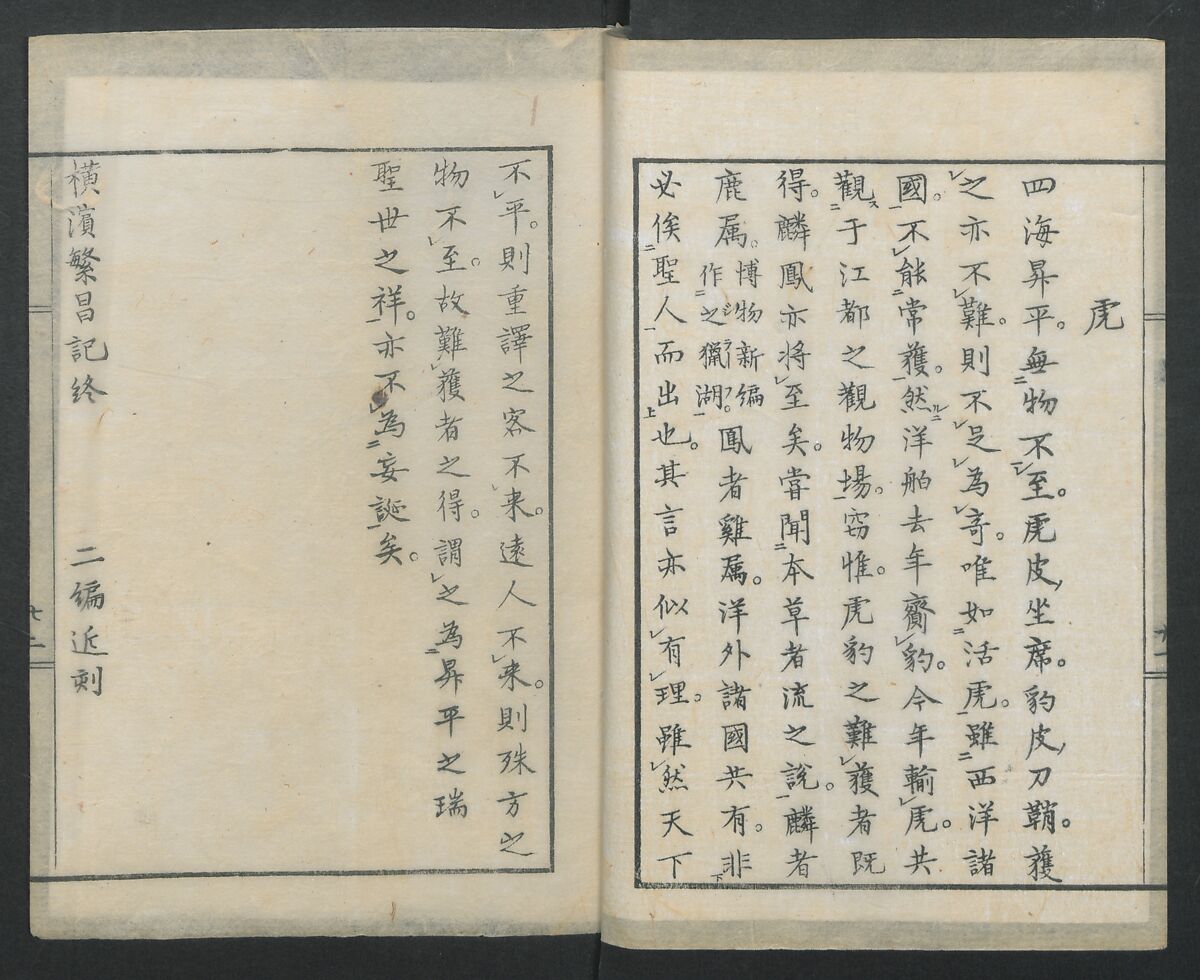 虎
四海昇平。無物不至。虎皮坐席。豹皮刀鞘。獲
之亦不難。則不足為奇。唯如活虎。雖西洋諸
國。不能常獲。然洋舶去年齎豹。今年輸虎。共
觀于江都之觀物場。窃惟。虎豹之難獲者既
得。麟鳳亦将至矣。嘗聞本草者流之說。麟者
鹿属。博物新编作之獵湖。鳳者雞属。洋外諸國共有。非
必俟聖人而出也。其言亦似有理。雖然天下
不平。則重譯之客不来。遠人不来。則殊方之
物不至。故難獲者之得。謂之為昇平之瑞
聖世之祥。亦不為妄誕矣。
横濱繁昌記終　二编近刻